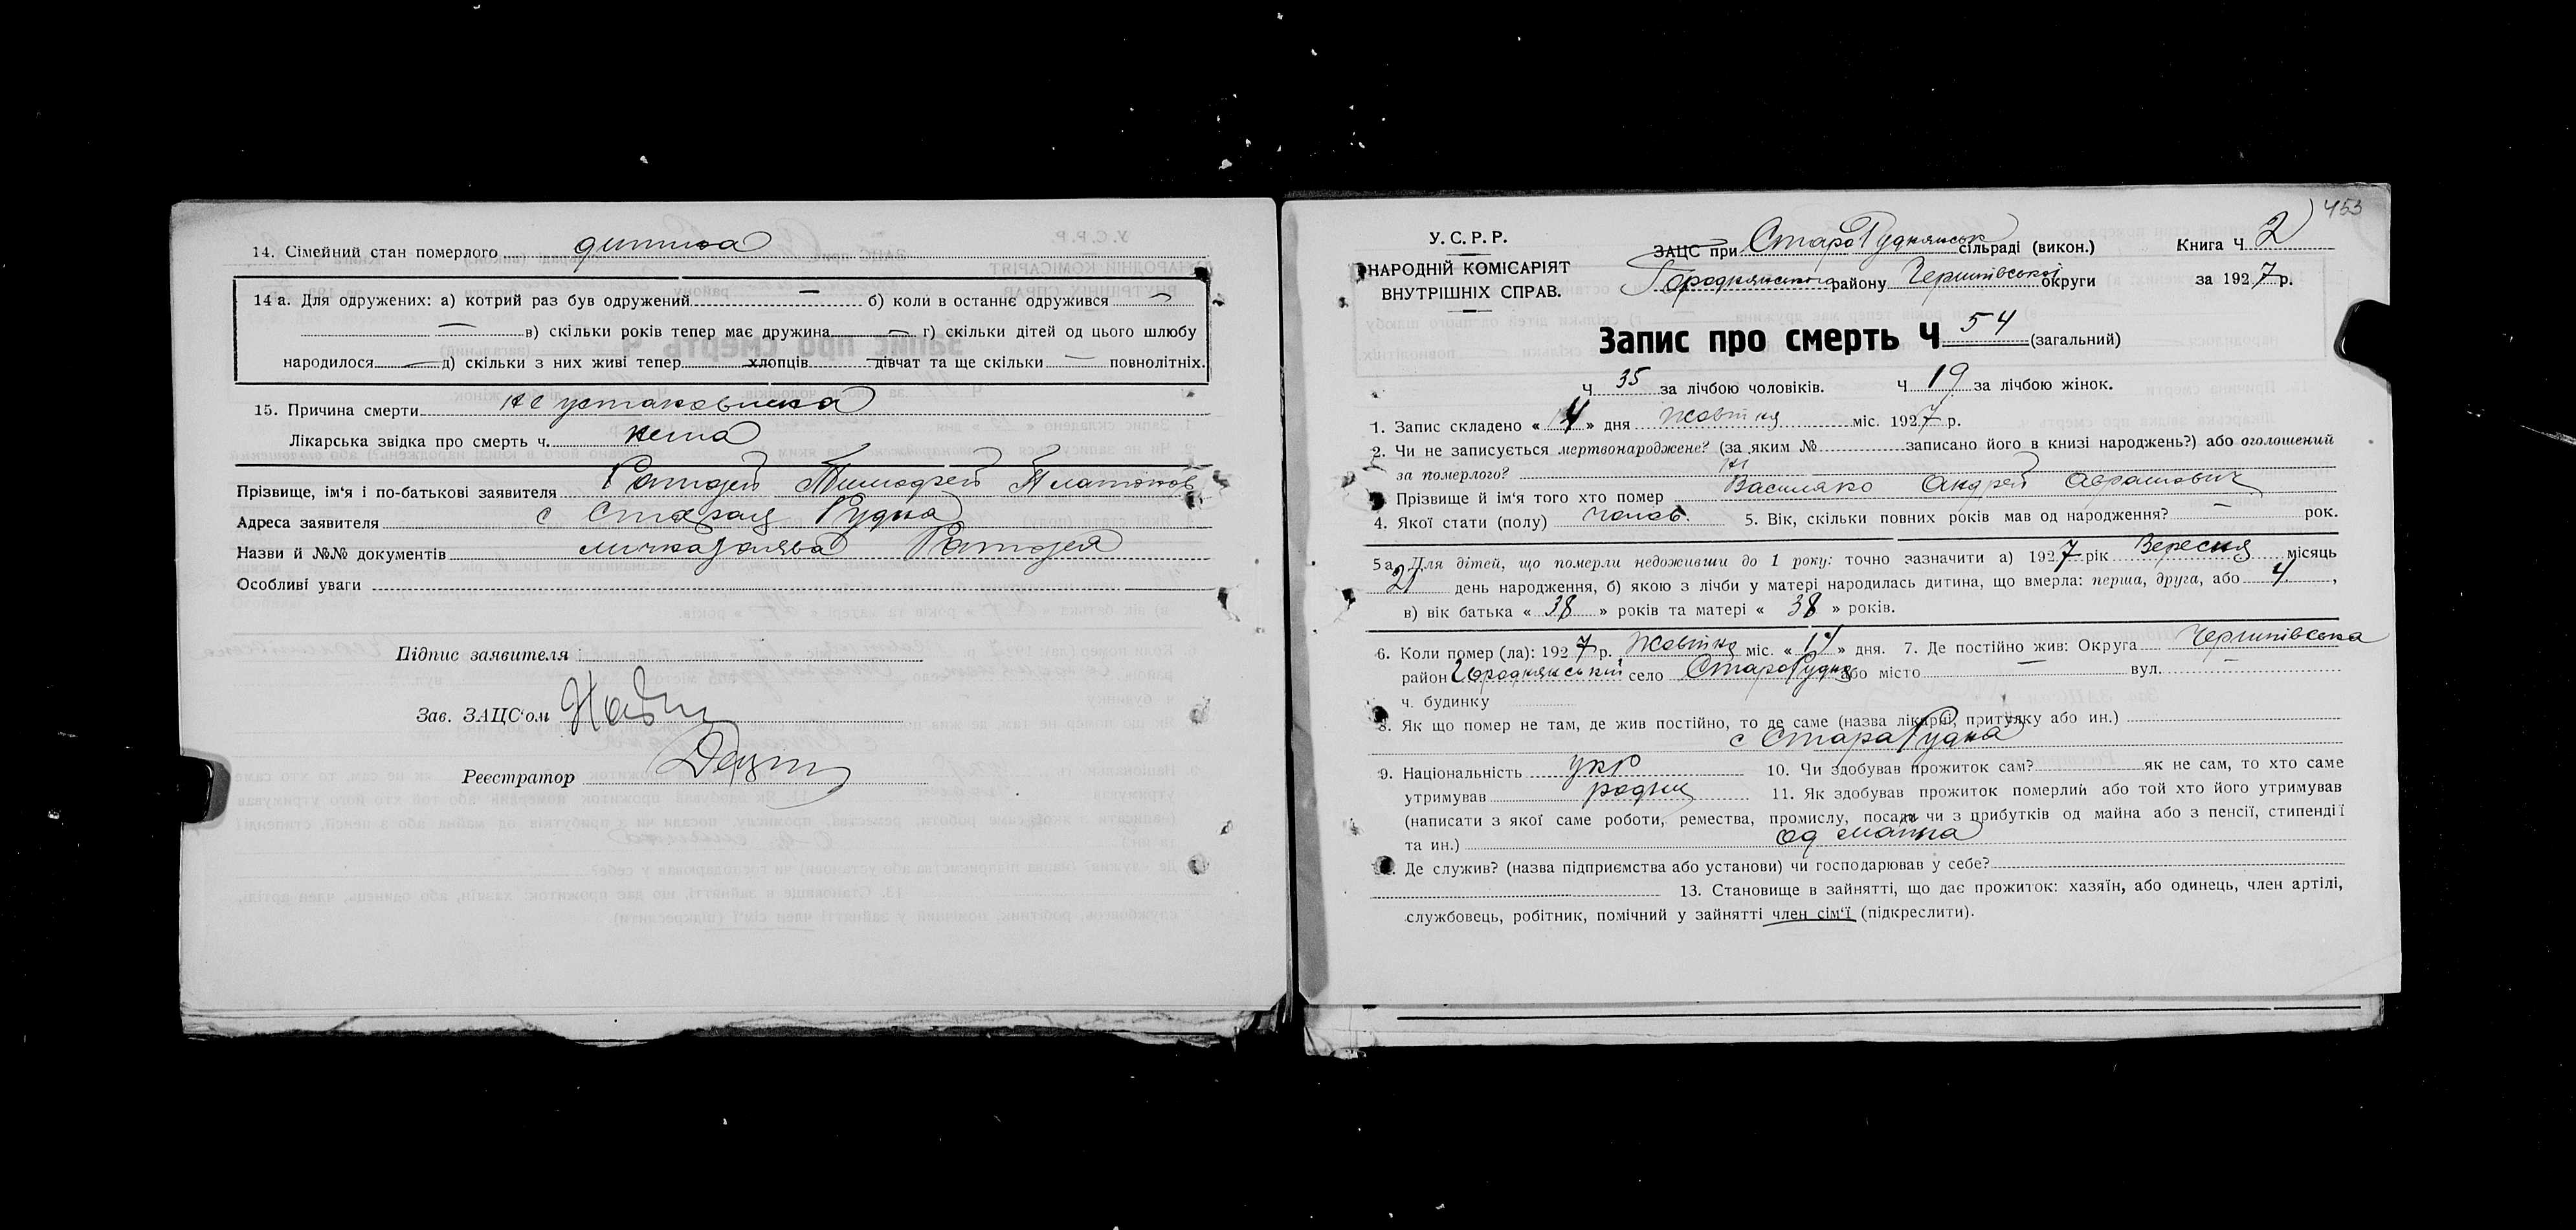 14. Сімейний стан померлого дитина
14 а. Для одружених: а) котрий раз був одружений — б) коли в останнє одружився —
— в) скільки років тепер має дружина — г) скільки дітей од цього шлюбу
народилося — д) скільки з них живі тепер — хлопців — дівчат та ще скільки — повнолітніх.
15. Причина смерти не установлена
Лікарська звідка про смерть ч. нема
Прізвище, ім'я і по-батькові заявителя Тимофей Платонов
Адреса заявителя с Старая Рудна
Назви й №№ документів
Особливі уваги
Підпис заявителя
Зав. ЗАЦС'ом
Реєстратор
453
У. С. Р. Р.
НАРОДНІЙ КОМІСАРІЯТ
ВНУТРІШНІХ СПРАВ.
ЗАЦС при Старо Руднянськ сільраді (викон.) Книга Ч 2
Городнянського району Чернігівської округи за 1927 р.
Запис про смерть Ч 54 (загальний)
Ч 35 за лічбою чоловіків. Ч 19 за лічбою жінок.
1. Запис складено « 14 » дня Жовтня міс. 1927 р.
2. Чи не записується мертвонароджене? (за яким № записано його в книзі народжень?) або оголошений
за померлого? Ні
Прізвище й ім'я того хто помер Василяко Андрей Абрамович
4. Якої стати (полу) чолов. 5. Вік, скільки повних років мав од народження? — рок.
5 а. Для дітей, що померли недоживши до 1 року: точно зазначити а) 1927 рік Вересня місяць
2 день народження, б) якою з лічби у матері народилась дитина, що вмерла: перша, друга, або 4,
в) вік батька « 38 » років та матері « 38 » років.
6. Коли помер (ла): 1927 р. Жовтня міс. « 14 » дня. 7. Де постійно жив: Округа Чернігівська
район Городнянський село Стара Рудня або місто — вул. —
ч. будинку
8. Як що помер не там, де жив постійно, то де саме (назва лікарні, притулку або ин.)
с Стара Рудна
9. Національність укр 10. Чи здобував прожиток сам? як не сам, то хто саме
утримував родич 11. Як здобував прожиток померлий або той хто його утримував
(написати з якої саме роботи, ремества, промислу, посади чи з прибутків од майна або з пенсії, стипендії
та ин.) од майна
Де служив? (назва підприємства або установи) чи господарював у себе?
13. Становище в зайнятті, що дає прожиток: хазяїн, або одинець, член артілі,
службовець, робітник, помічний у зайнятті член сім'ї (підкреслити).